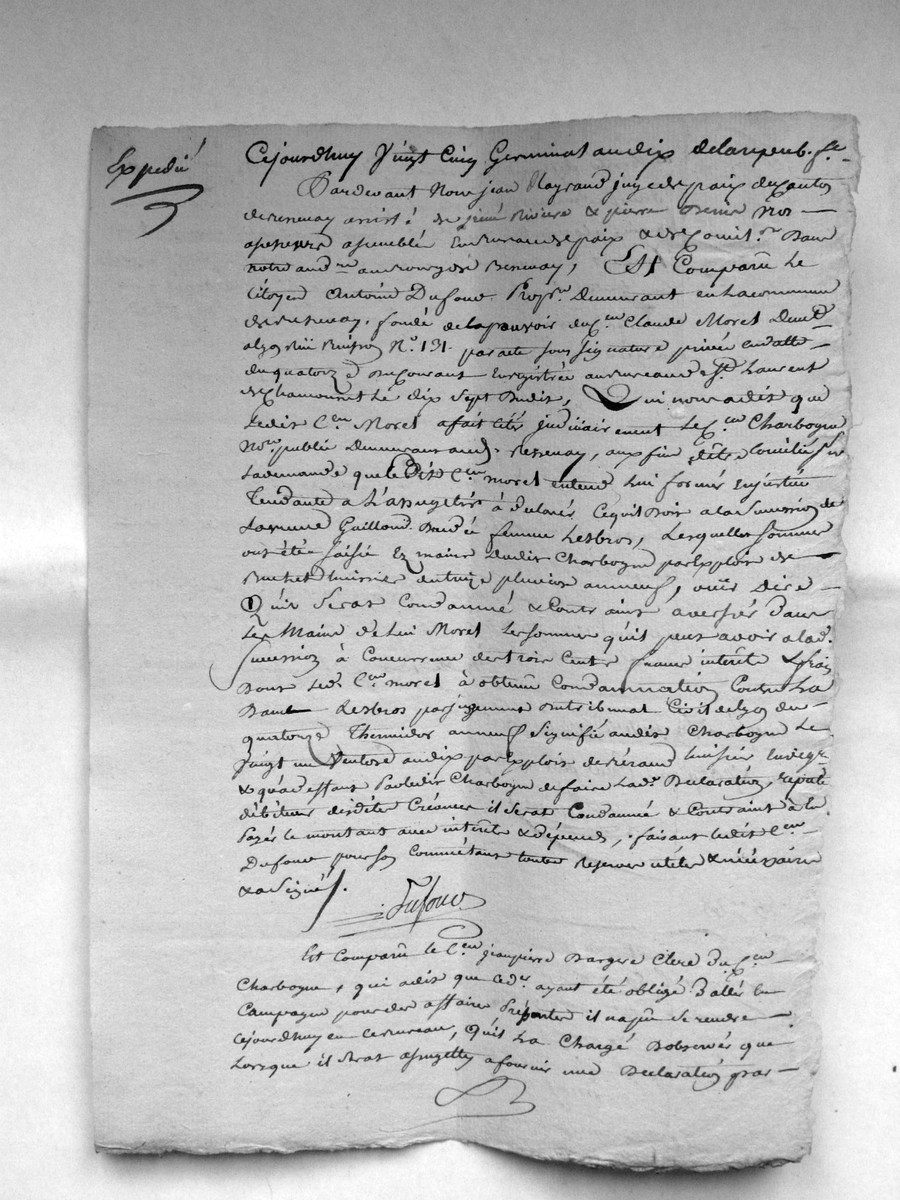 Expedié
Cejourdhuy Vingt Cinq Germinal an dix delarepub. fse
Pardevant Nous jean Mayraud juge de paix du Canton
de assisté de Riviere & pierre Nos
assesseurs assemblés En bureau de paix & de Concil.on Dans
notre aud.re au bourg de Est Comparu Le
Citoyen Antoine Dufour Prop.re Demeurant en La commune
de fondé de la pouvoir du C.en Claude Moret Dem.t
a lyon Ruë Buisson N.o 131. par acte sous Signature privée en datte
du quatorze Du Courant Enregistrée au bureau de S.t Laurent
de Chamousset Le dix Sept Dudit, Qui nous a dit que
Ledit C.en Moret a fait Cités judiciairement Le C.en Charbogne
No.re public Demeurant aud. aux fins d'être Concilié Sur
La demande que Ledit C.en moret entend Lui former En justice
Tendante a L'assugetir à Declarer Ce quil Doit a la Succession de
Guilloud Dandé femme Lesbros, Lesquelles Sommes
ont été Saisie Ez mains Dudit Charbogne par Exploit de
huissier du treize pluviose an neuf, ouïr Dire
Quil Serat Condamné & Contraint a verser Dans
Les Mains de Lui Moret Les Sommes qu'il peut avoir a lad.
Succession à Concurrence de trois Cents francs interêts & frais
Dont Led. C.en moret à obtenu Condamnation Contre La
Dandé Lesbros par jugement Du tribunal Civil de lyon du
quatorze Thermidor an neuf Signifié audit Charbogne Le
Vingt un Ventose an dix par Exploit de huissier
& qu'a deffaut Par Ledit Charbogne de faire Lad. Declaration, réputé
débiteur desdites Créances il Serat Condamné & Contraint à le
Payer le montant avec interêts & dépends, faisant Ledit C.en
Dufour pour Son Commettant toutes reserves utiles & nécessaires
& a Signé.
Dufour
Est Comparu le C.en jean pierre Bargere Clerc Du C.en
Charbogne, qui a dit que Ce der. ayant été obligé D'aller En
Campagne pour des affaires il na pu Se rendre
Cejourdhuy en Ce bureau, qu'il La Chargé D'observer que
Lorsque il Serat assugetty a fournir une Declaration par